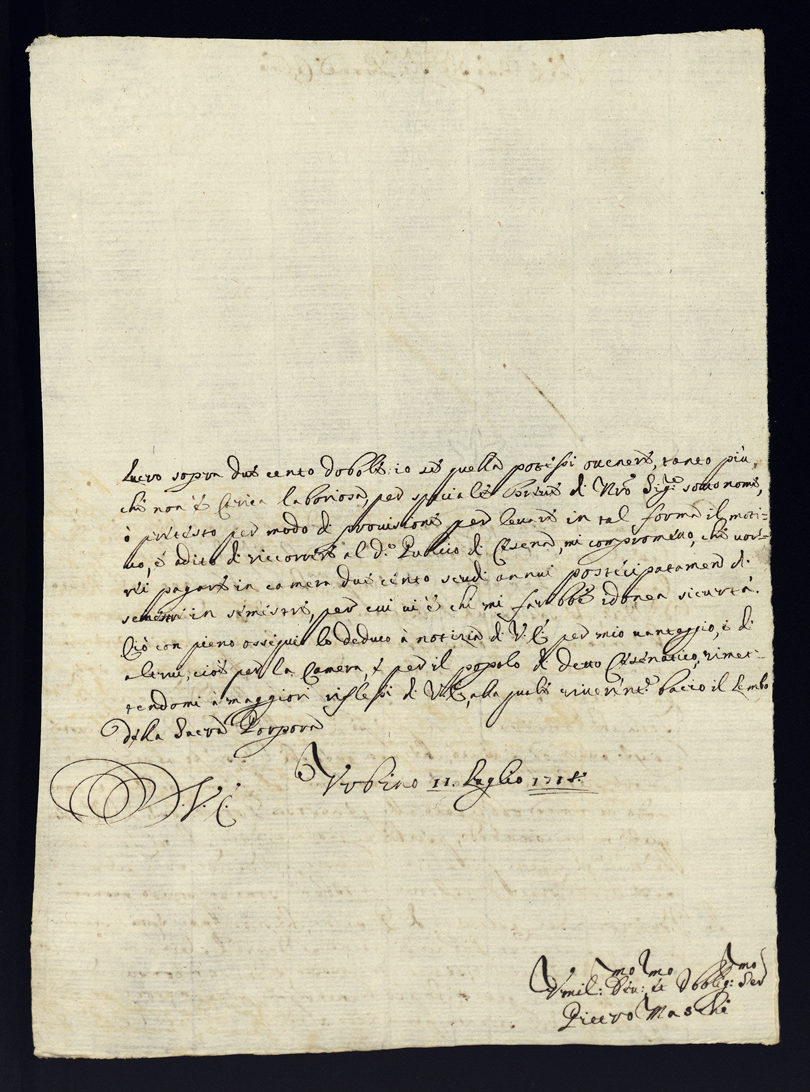 lucro sopra due cento doble: io se quella potessi ottenere, tanto più,
che non è Carica laboriosa, per speciale Breve di Nrõ Sigr.e sotto nome,
ò pretesto per modo di provisione per levare in tal forma il moti-
vo, è adito di riccorrere al d.o Publico di Cesena, mi comprometto, che vor-
rei pagare in camera due cento scudi annui posticipatamen di
semestre in semestre, per cui vi è chi mi farebbe idonea sicurtà.
Ciò con pieno ossequio lo deduco à notitia di V. E. per mio vantaggio, è di
altrui, cioè per la Camera, e per il popolo di detto Cesenatico, rimet-
tendomi à maggiori riflessi di V. E., alla quale riverent.e bacio il Lembo
della Sacra Porpora
Urbino 11. Luglio
V. E.
Umil:mo Div:mo et Obblig:mo Ser
Pietro Maschi